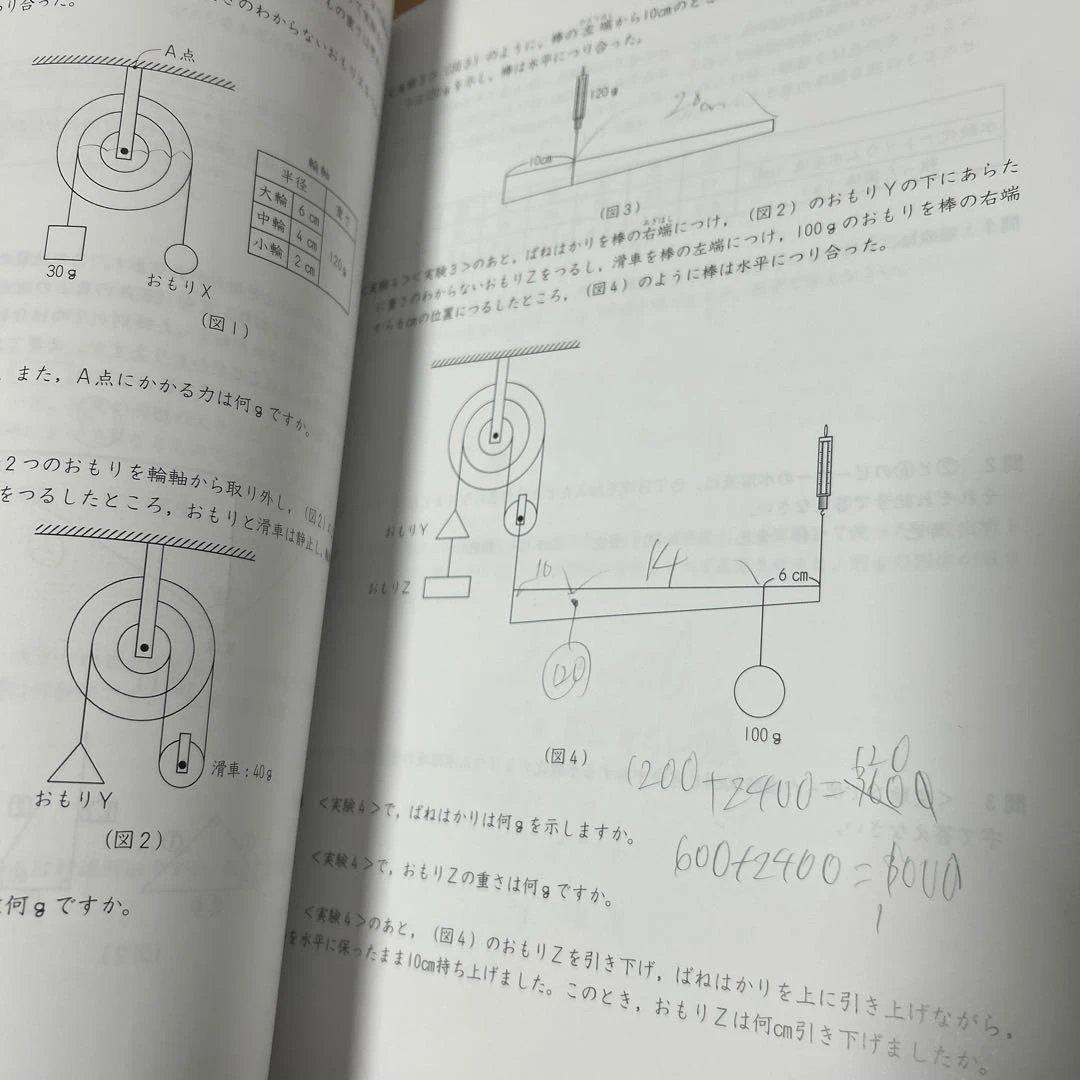 り合った。
のわからないおもり
A点
輪軸
半径
重さ
大輪 6cm
中輪 4cm
小輪 2cm
120g
30g
おもりX
(図1)
また,A点にかかる力は何gですか。
2つのおもりを輪軸から取り外し,(図2)
をつるしたところ,おもりと滑車は静止し,
滑車:40g
おもりY
(図2)
何gですか。
のように,棒の左端から10cmのと
を示し,棒は水平につり合った。
120g
20cm
10cm
(図3)
<実験4><実験3>のあと,ばねはかりを棒の右端につけ,(図2)のおもりYの下にあらた
みぎはし
に重さのわからないおもりZをつるし,滑車を棒の左端につけ,100gのおもりを棒の右端
から6cmの位置につるしたところ,(図4)のように棒は水平につり合った。
おもりY
おもりZ
10
14
6cm
120
100g
(図4)
1200+2400=3600
120
<実験4>で,ばねはかりは何gを示しますか。
600+2400=3000
<実験4>で,おもりZの重さは何gですか。
<実験4>のあと,(図4)のおもりZを引き下げ,ばねはかりを上に引き上げながら,
を水平に保ったまま10cm持ち上げました。このとき,おもりZは何cm引き下げましたか。